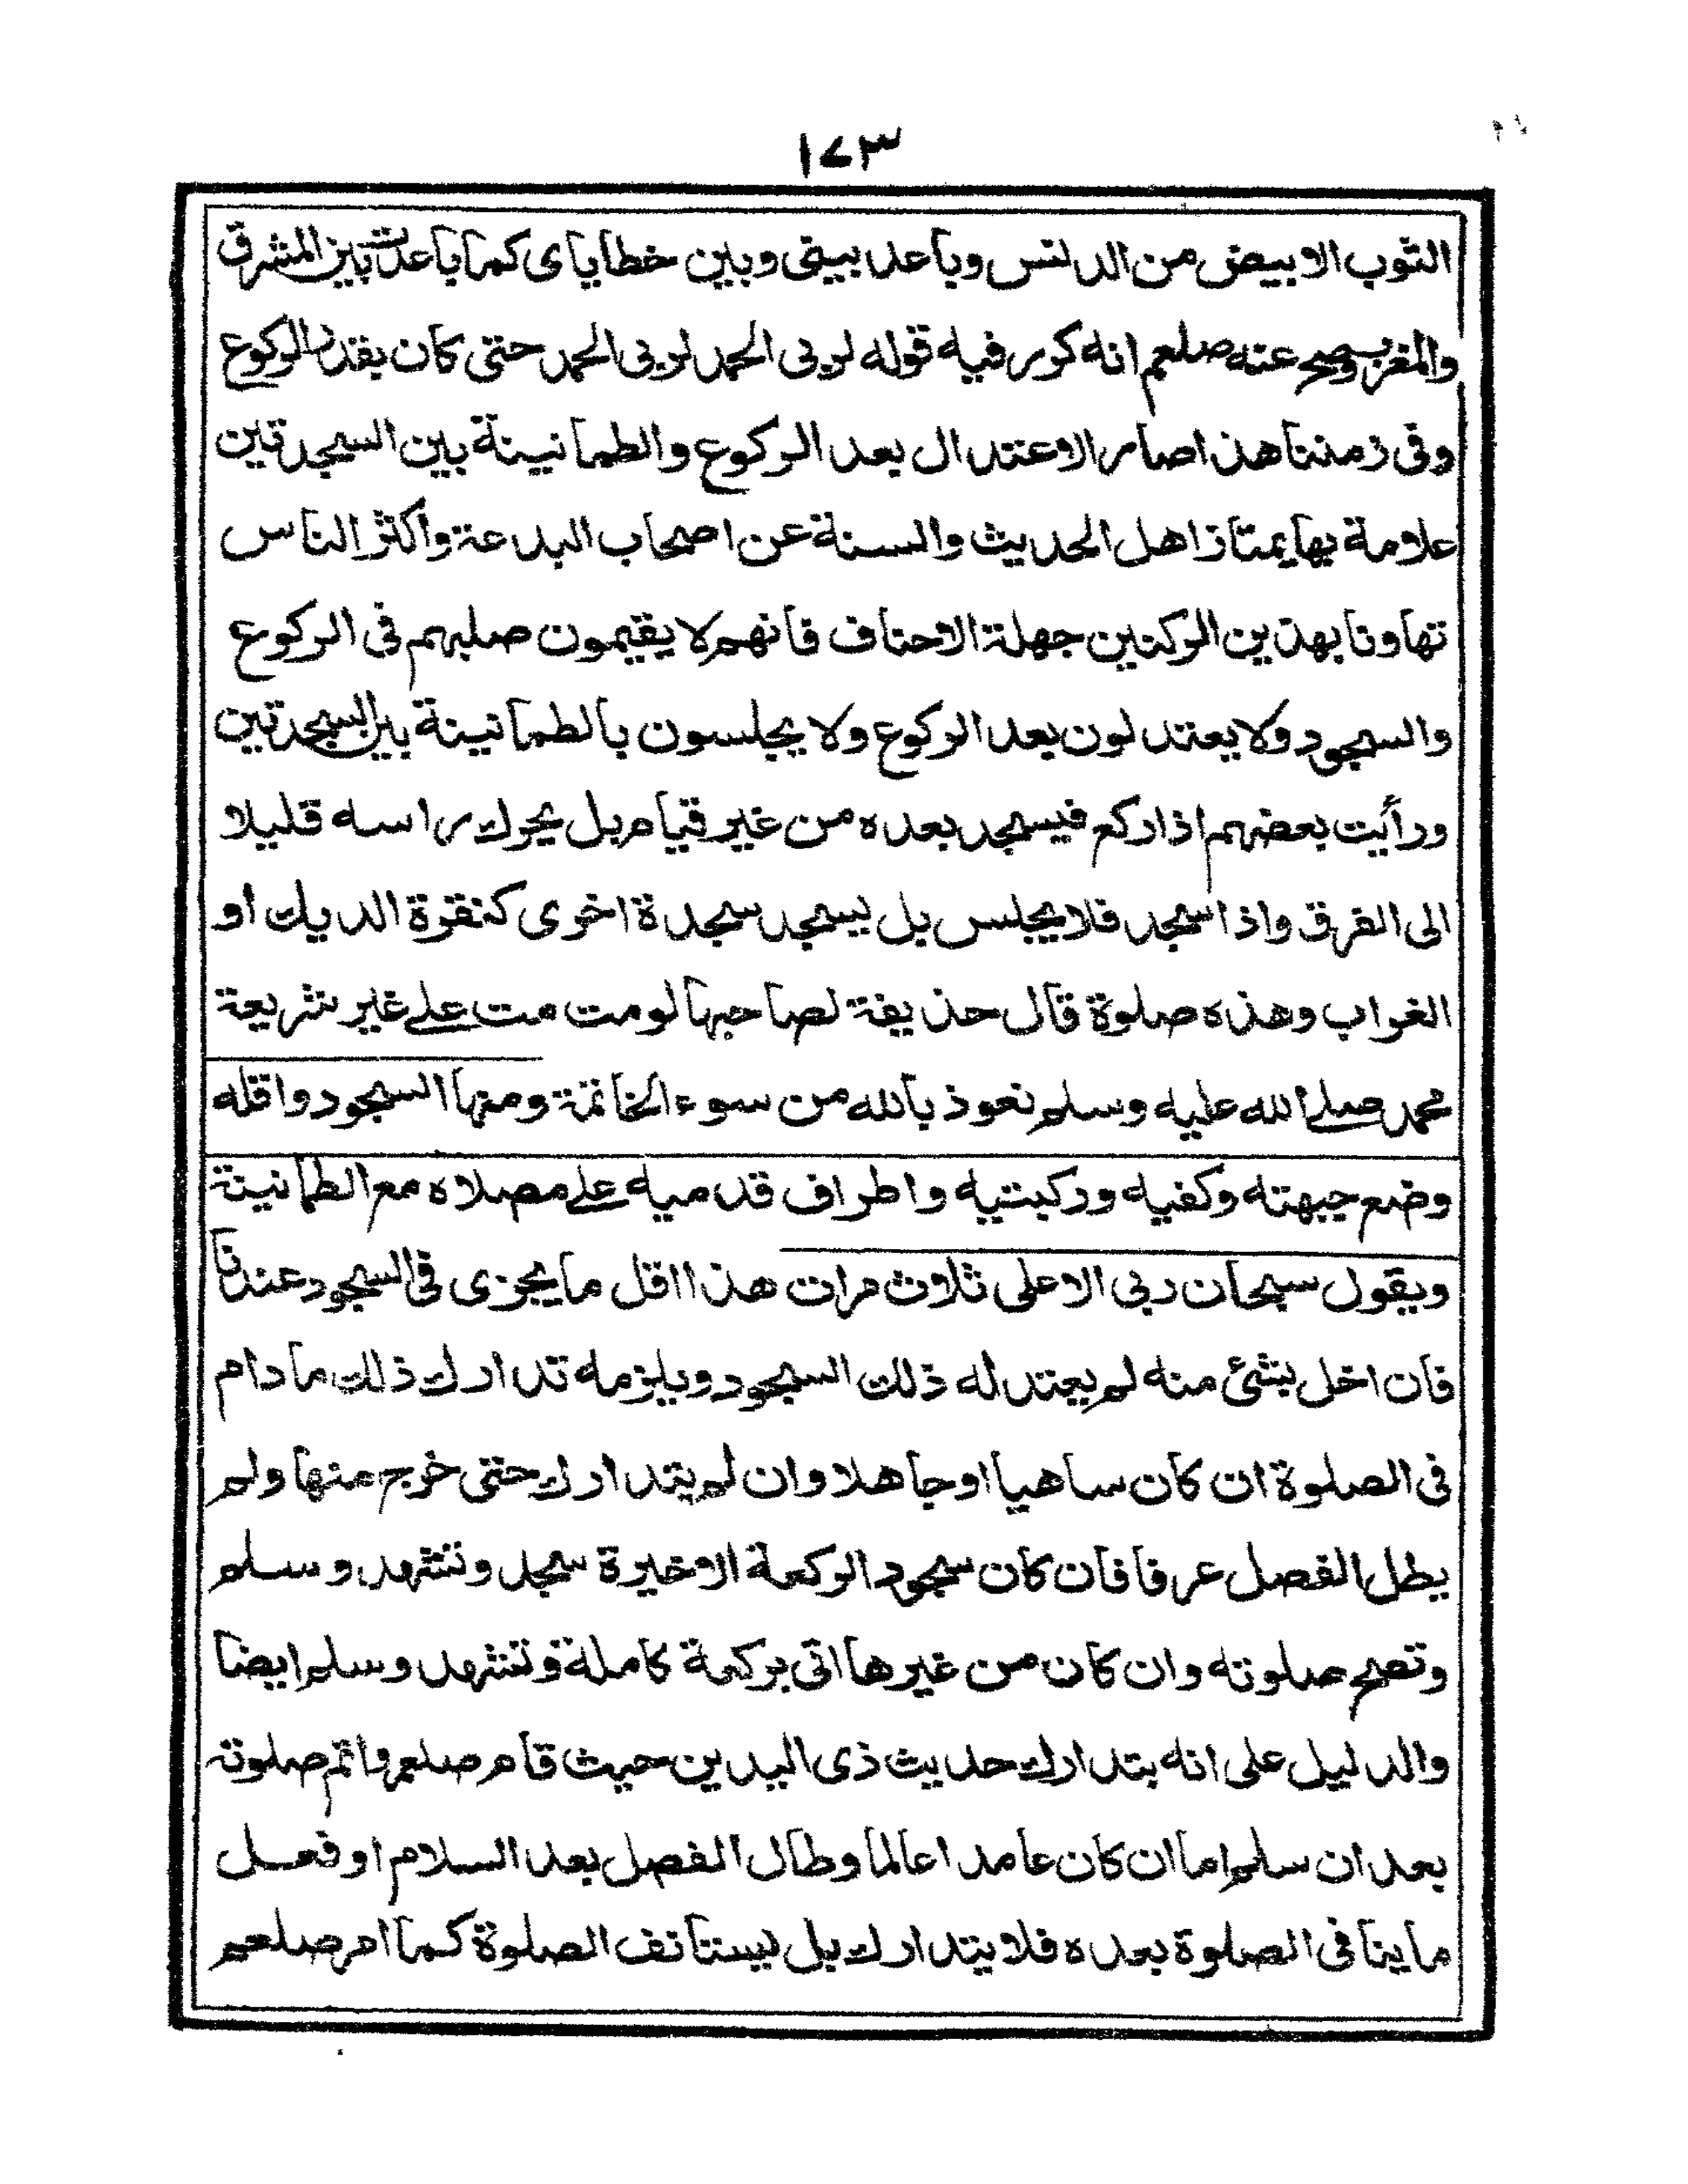 ١٧٣
الثوب الابيض من الدنس وباعد بينى وبين خطاياى كما باعدت بين المشرق
والمغرب وصح عنه صلعم انه كرر فيه قوله لربى الحمد لربى الحمد حتى كان بقدر الركوع
وفى زمننا هذا صار الاعتدال بعد الركوع والطمانينة بين السجدتين
علامة بها يمتاز اهل الحديث والسنة عن اصحاب البدعة واكثر الناس
تهاونا بهذين الركنين جهلة الاحناف فانهم لا يقيمون صلبهم فى الركوع
والسجود ولا يعتدلون بعد الركوع ولا يجلسون بالطمانينة بين السجدتين
ورأيت بعضهم اذا ركع فيسجد بعده من غير قيام بل يحرك راسه قليلا
الى الفرق واذا سجد فلا يجلس بل يسجد سجدة اخرى كنقرة الديك او
الغراب وهذه صلوة قال حذيفة لصاحبها لو مت مت على غير شريعة
محمد صلے الله عليه وسلم نعوذ بالله من سوء الخاتمة ومنها السجود واقله
وضع جبهته وكفيه وركبتيه واطراف قدميه علے مصلاه مع الطمانينة
ويقول سبحان ربى الاعلى ثلاث مرات هذا اقل ما يجزى فى السجود عندنا
فان اخل بشئ منه لم يعتد له ذلك السجود ويلزمه تدارك ذلك ما دام
فى الصلوة ان كان ساهيا او جاهلا وان لم يتدارك حتى خرج منها ولم
يطل الفصل عرفا فان كان سجود الركعة الاخيرة سجد وتشهد وسلم
وتصح صلوته وان كان من غيرها اتى بركعة كاملة وتشهد وسلم ايضا
والدليل على انه يتدارك حديث ذى اليدين حيث قام صلعم واتم صلوته
بعد ان سلم اما ان كان عامدا عالما وطال الفصل بعد السلام او فعل
ما ينافى الصلوة بعده فلا يتدارك بل يستانف الصلوة كما امر صلعم